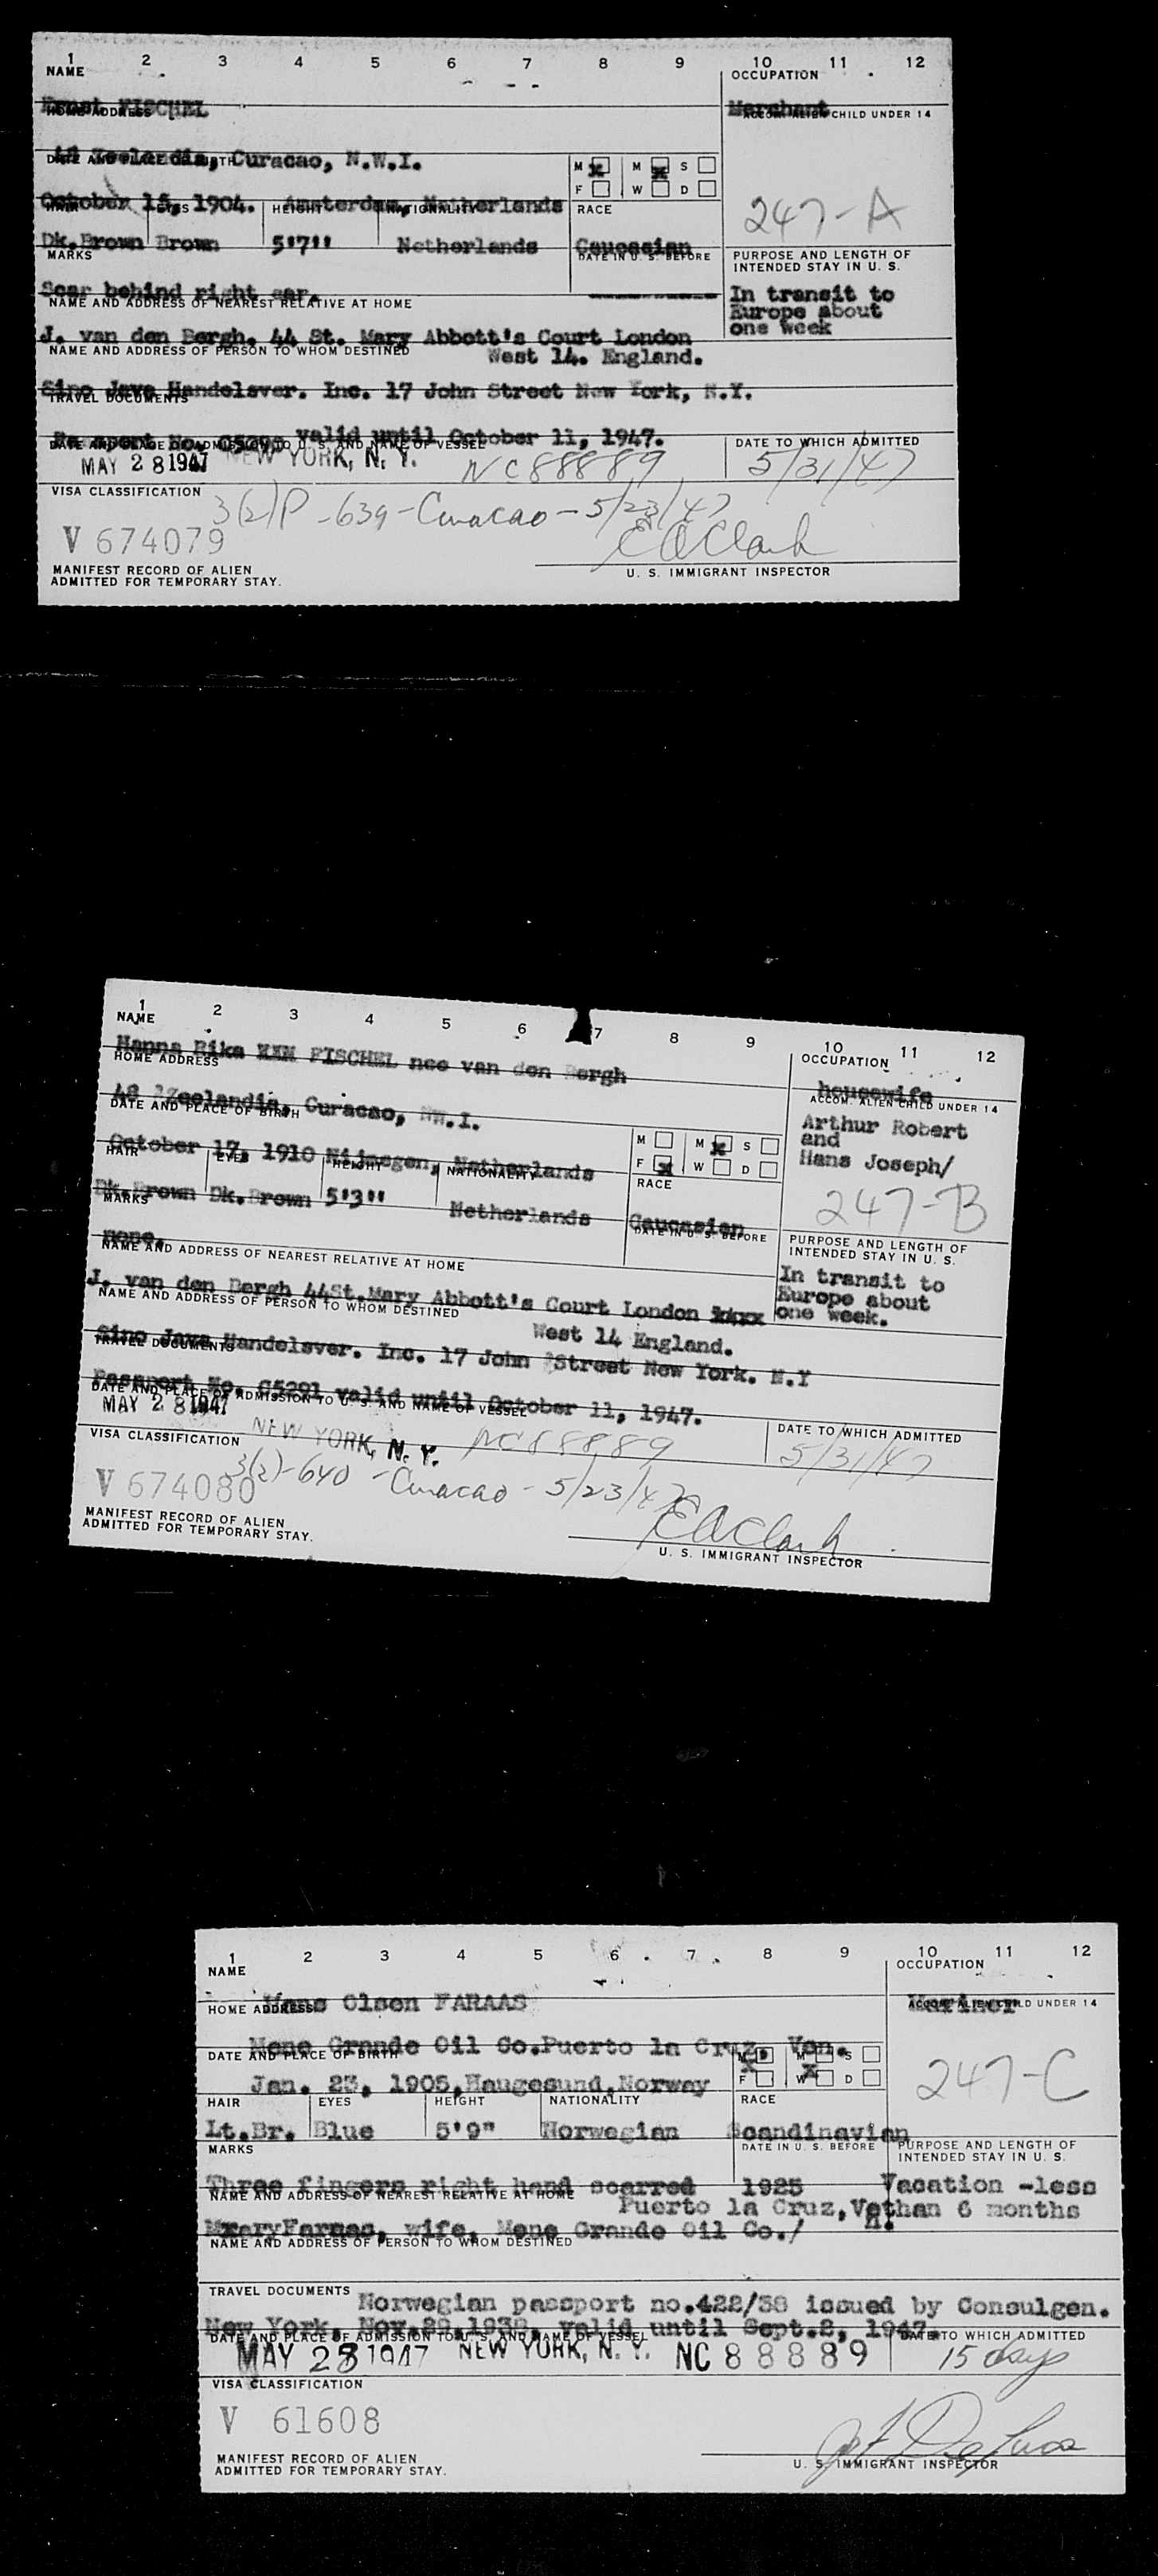 1 2 3 4 5 6 7 8 9 10 11 12
NAME OCCUPATION
Ernst FISCHEL Merchant
HOME ADDRESS ACCOM. ALIEN CHILD UNDER 14
48 Zeelandia, Curacao, N.W.I.
DATE AND PLACE OF BIRTH M M S
F W D
October 15, 1904. Amsterdam, Netherlands 247-A
HAIR EYES HEIGHT NATIONALITY RACE
Dk.Brown Brown 5'7" Netherlands Caucasian
MARKS DATE IN U. S. BEFORE PURPOSE AND LENGTH OF
INTENDED STAY IN U. S.
Scar behind right ear. In transit to
Europe about
one week
NAME AND ADDRESS OF NEAREST RELATIVE AT HOME
J. van den Bergh. 44 St. Mary Abbott's Court London
West 14. England.
NAME AND ADDRESS OF PERSON TO WHOM DESTINED
Sino Java Handelsver. Inc. 17 John Street New York, N.Y.
TRAVEL DOCUMENTS
Passport No. valid until October 11, 1947.
DATE AND PLACE OF ADMISSION TO U. S. AND NAME OF VESSEL DATE TO WHICH ADMITTED
MAY 28 1947 NEW YORK, N. Y. NC88889 5/31/47
VISA CLASSIFICATION 3(2)P-639-Curacao-5/23/47
V 674079 E A Clark
MANIFEST RECORD OF ALIEN
ADMITTED FOR TEMPORARY STAY. U. S. IMMIGRANT INSPECTOR
1 2 3 4 5 6 7 8 9 10 11 12
NAME OCCUPATION
Hanna Rika XXX FISCHEL nee van den Bergh housewife
HOME ADDRESS ACCOM. ALIEN CHILD UNDER 14
48 Zeelandia, Curacao, NW.I. Arthur Robert
and
Hans Joseph/
DATE AND PLACE OF BIRTH M M S
F W D
October 17, 1910 Nijmegen, Netherlands 247-B
HAIR EYES HEIGHT NATIONALITY RACE
Dk.Brown Dk.Brown 5'3" Netherlands Caucasian
MARKS DATE IN U. S. BEFORE PURPOSE AND LENGTH OF
INTENDED STAY IN U. S.
none. In transit to
Europe about
one week.
NAME AND ADDRESS OF NEAREST RELATIVE AT HOME
J. van den Bergh 44St.Mary Abbott's Court London xxxx
West 14 England.
NAME AND ADDRESS OF PERSON TO WHOM DESTINED
Sino Java Handelsver. Inc. 17 John Street New York. N.Y
TRAVEL DOCUMENTS
Passport No. G5291 valid until October 11, 1947.
DATE AND PLACE OF ADMISSION TO U. S. AND NAME OF VESSEL DATE TO WHICH ADMITTED
MAY 28 1947 NEW YORK, N. Y. NC88889 5/31/47
VISA CLASSIFICATION 3(2)-640-Curacao-5/23/47
V 674080 E A Clark
MANIFEST RECORD OF ALIEN
ADMITTED FOR TEMPORARY STAY. U. S. IMMIGRANT INSPECTOR
1 2 3 4 5 6 7 8 9 10 11 12
NAME OCCUPATION
Olsen FARAAS Mariner
HOME ADDRESS ACCOM. ALIEN CHILD UNDER 14
Mene Grande Oil Co.Puerto la Cruz, Ven.
DATE AND PLACE OF BIRTH M M S
F W D
Jan. 23, 1905,Haugesund,Norway 247-C
HAIR EYES HEIGHT NATIONALITY RACE
Lt.Br. Blue 5'9" Norwegian Scandinavian
MARKS DATE IN U. S. BEFORE PURPOSE AND LENGTH OF
INTENDED STAY IN U. S.
Three fingers right hand scarred 1925 Vacation -less
NAME AND ADDRESS OF NEAREST RELATIVE AT HOME Puerto la Cruz,Ve than 6 months
Faraas, wife, Mene Grande Oil Co./ n.
NAME AND ADDRESS OF PERSON TO WHOM DESTINED
TRAVEL DOCUMENTS Norwegian passport no.422/38 issued by Consulgen.
New York, Nov.29,1938, valid until Sept.2, 1947.
DATE AND PLACE OF ADMISSION TO U. S. AND NAME OF VESSEL DATE TO WHICH ADMITTED
MAY 28 1947 NEW YORK, N. Y. NC 88889 15 days
VISA CLASSIFICATION
V 61608
MANIFEST RECORD OF ALIEN
ADMITTED FOR TEMPORARY STAY. U. S. IMMIGRANT INSPECTOR